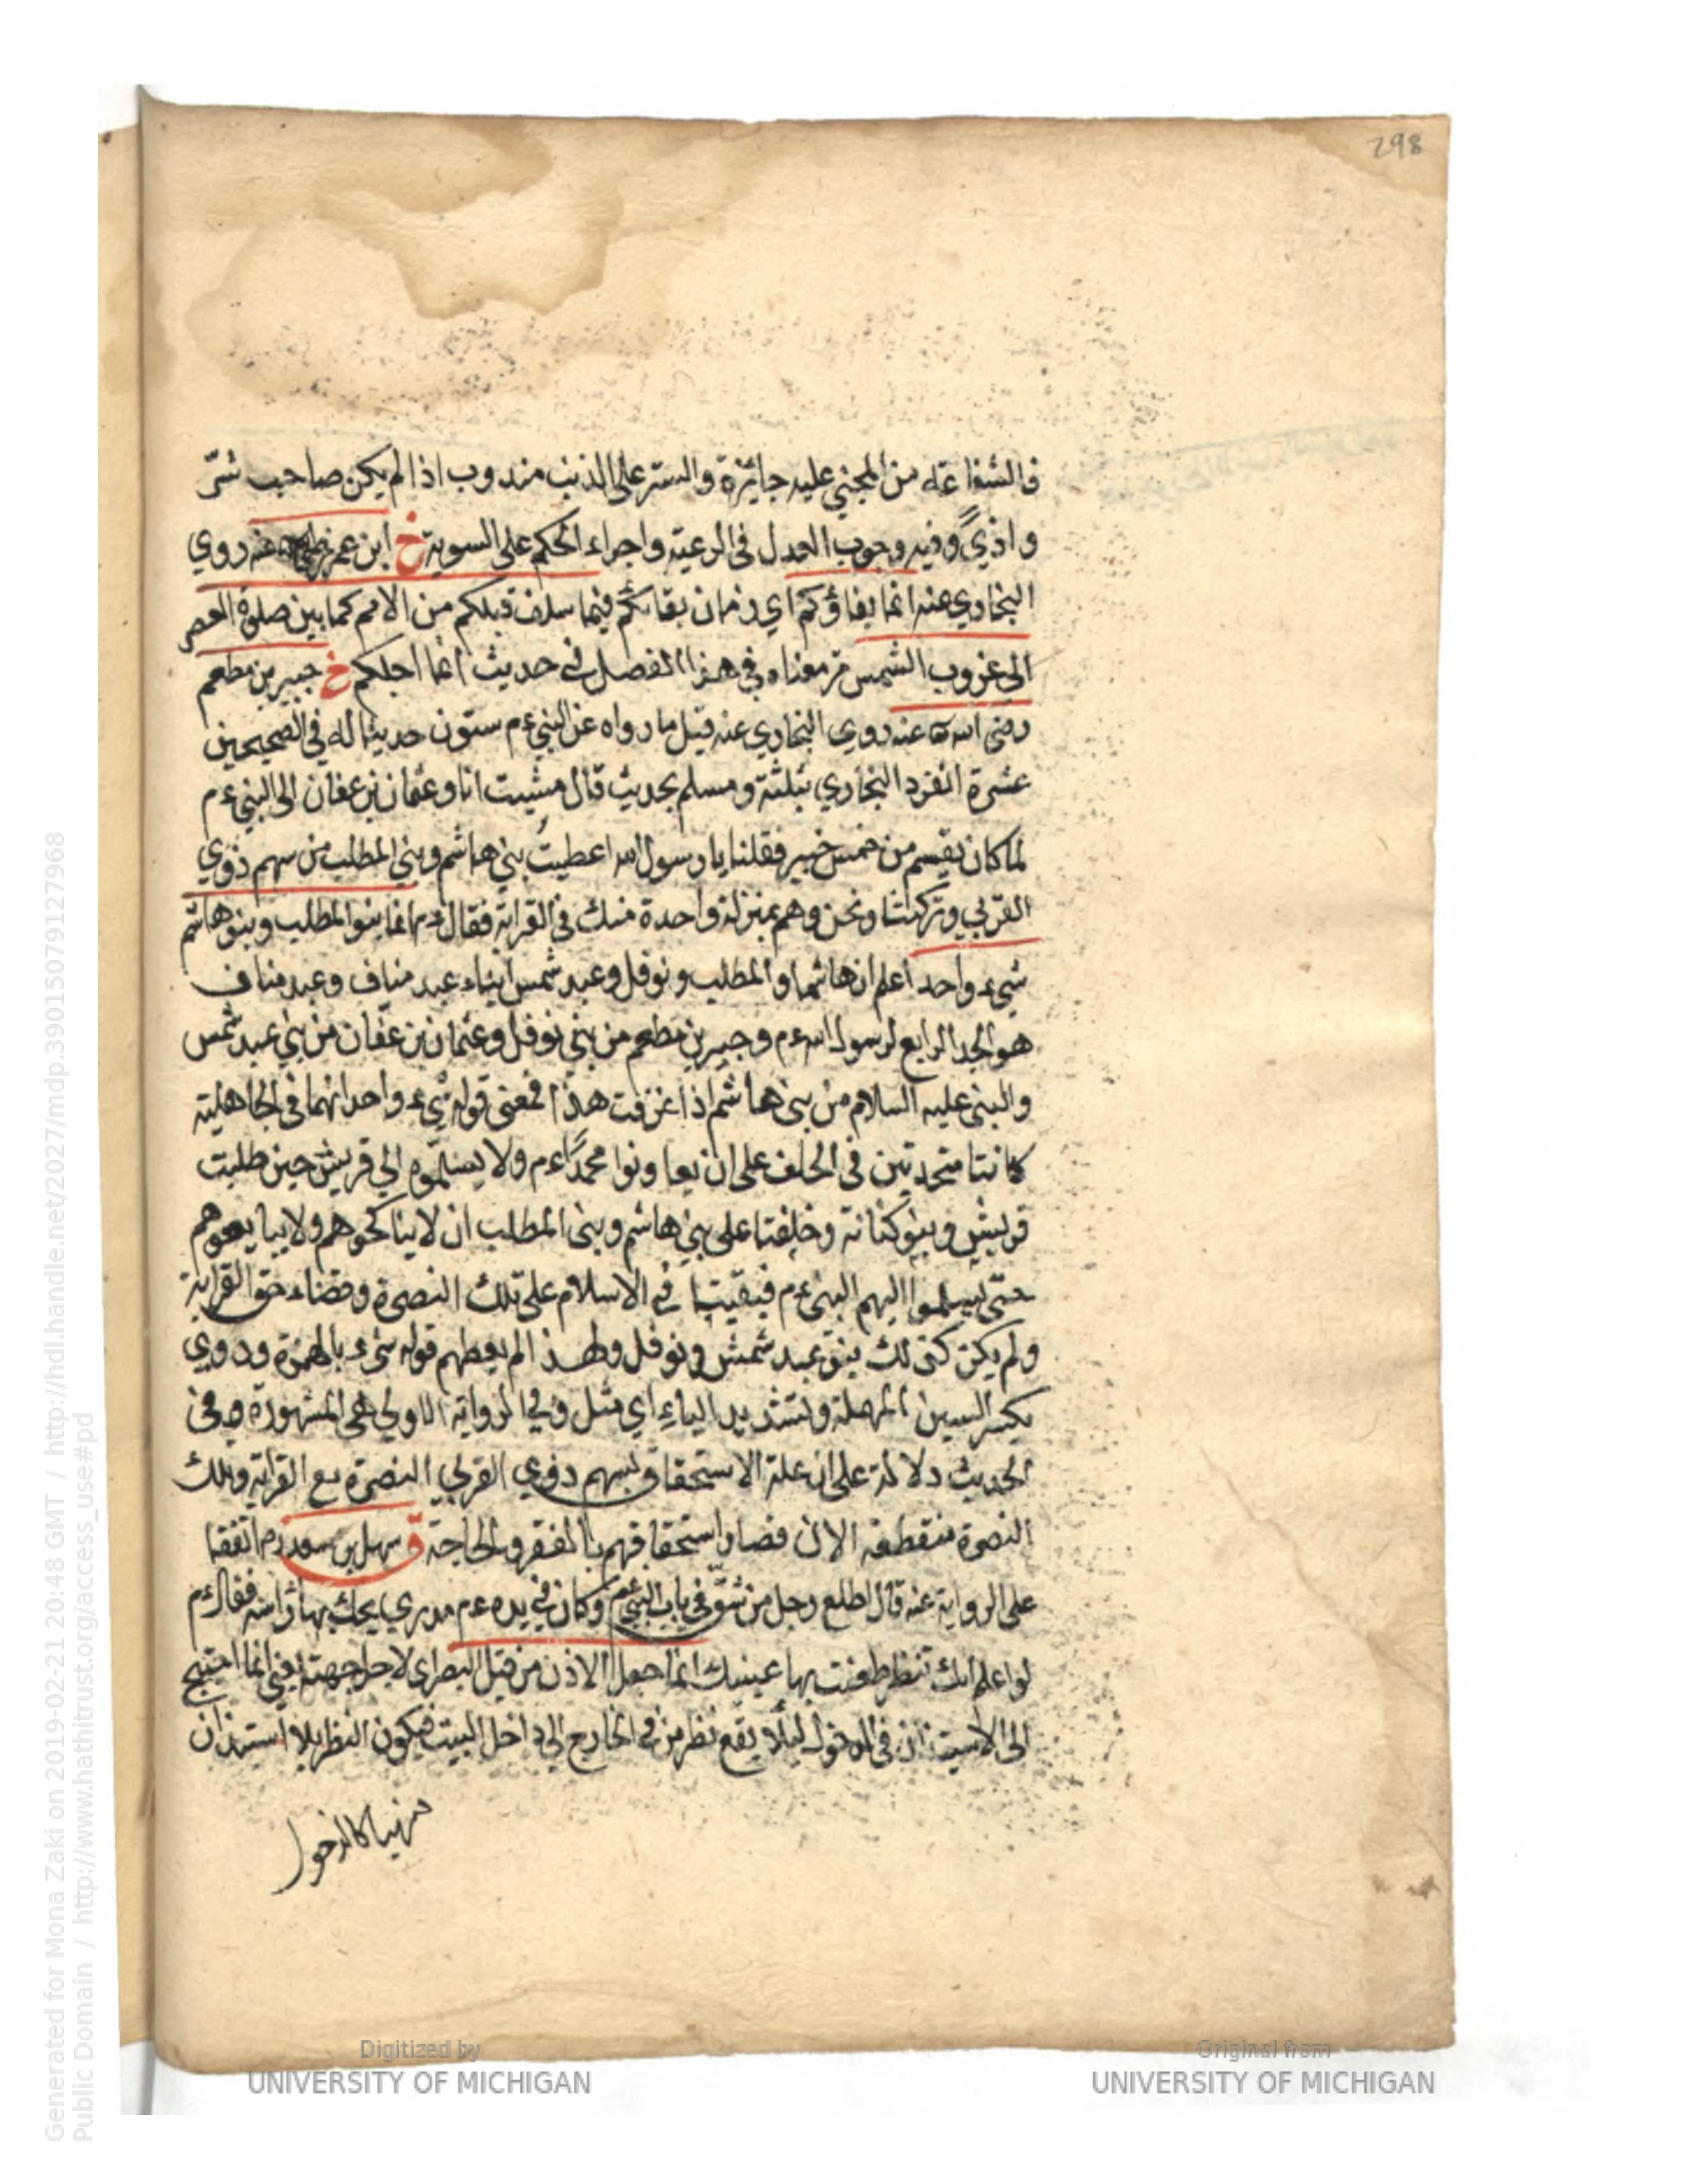 298
فالشفاعة من المجني عليه جائزة والستر على الذنب مندوب اذا لم يكن صاحب شرّ
واذيً وفيه وجوب العدل في الرعية واجراء الحكم على السوية خ ابن عمر عنه روي
البخاري عنه انما بقاؤكم اي زمان بقائكم فيما سلف قبلكم من الامم كما بين صلوة العصر
الى غروب الشمس مر معناه في هذا الفصل في حديث انما اجلكم خ جبير بن مطعم
رضي الله عنه روي البخاري عنه قيل ما رواه عن النبي ءم ستون حديثا له في الصحيحين
عشرة انفرد البخاري بثلثة ومسلم بحديث قال مشيت انا وعثمان بن عفان الى النبي ءم
لما كان يقسم من خمس خيبر فقلنا يا رسول الله اعطيت بني هاشم وبني المطلب من سهم ذوي
القربي وتركتنا ونحن وهم بمنزلة واحدة منك في القرابة فقال ءم انما بنوا المطلب وبنو هاشم
شيء واحد اعلم ان هاشما والمطلب ونوفل وعبد شمس ابناء عبد مناف وعبد مناف
هو الجد الرابع لرسول الله ءم وجبير بن مطعم من بني نوفل وعثمان بن عفان من بني عبد شمس
والنبي عليه السلام من بني هاشم اذا عرفت هذا فمعني قوله شيء واحد انهما في الجاهلية
كانتا متحدتين في الحلف على ان يعاونوا محمدًا ءم ولا يسلّموه الي قريش حين طلبت
قريش وبنو كنانة وحلفتا على بني هاشم وبني المطلب ان لا يناكحوهم ولا يبايعوهم
حتى يسلموا اليهم النبي ءم فبقيتا في الاسلام على تلك النصرة وقضاء حق القرابة
ولم يكن كذلك بنو عبد شمس ونوفل ولهذا لم يعطهم قوله شيء بالهمزة وروي
بكسر السين المهملة وتشديد الياء اي مثل وفي الرواية الاولي هي المشهورة وفي
الحديث دلالة على ان علة الاستحقاق بسهم ذوي القربي النصرة مع القرابة وتلك
النصرة منقطعة الان فصار استحقاقهم بالفقر والحاجة ق سهل بن سعد رم اتفقا
على الرواية عنه قال اطلع رجل من شقّ في باب النبي ءم وكان في يده ءم مدري يحك بها راسه فقال ءم
لو اعلم انك تنظر طعنت بها عينيك انما جعل الاذن من قبل البصر اي لاجل جهته يعني انما احتيج
الى الاستيذان في الدخول ليلّا يقع نظر من في الخارج الى داخل البيت فيكون النظر بلا استيذان
منهيا كالدخول
Generated for Mona Zaki on 2019-02-21 20:48 GMT / http://hdl.handle.net/2027/mdp.39015079127968
Public Domain / http://www.hathitrust.org/access_use#pd
Digitized by
UNIVERSITY OF MICHIGAN
Original from
UNIVERSITY OF MICHIGAN